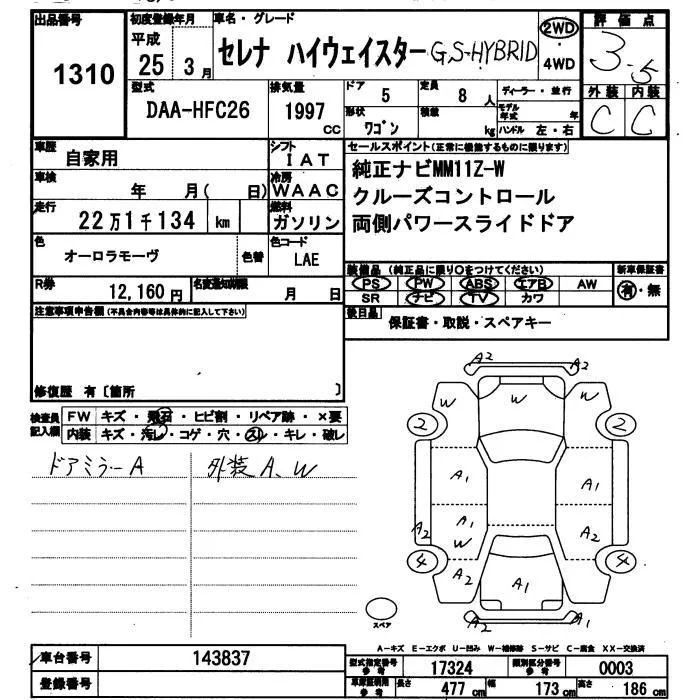 出品番号
1310
初度登録年月
平成
25 3月
車名・グレード
セレナ ハイウェイスター G.S-HYBRID
2WD
・
4WD
評価点
3.5
外装 内装
C C
型式
DAA-HFC26
排気量
1997 CC
ドア
5
定員
8 人
ディーラー・並行
形状
ワゴン
積載
kg
モデル年式 年
ハンドル 左・右
車歴
自家用
シフト
IAT
車検
年 月( 日)
冷房
WAAC
走行
22万1千134 km
燃料
ガソリン
セールスポイント(正常に機能するものに限ります)
純正ナビMM11Z-W
クルーズコントロール
両側パワースライドドア
色
オーロラモーヴ
色替
色コード
LAE
R券
12,160円
名変通知期限
月 日
装備品 (純正品に限り○をつけてください)
PS PW ABS エアB AW
SR ナビ TV カワ
新車保証書
有・無
注意事項申告欄(不具合内容等は具体的に記入して下さい)
後日品
保証書・取説・スペアキー
修復歴 有〔箇所 〕
検査員記入欄
FW キズ・飛石・ヒビ割・リペア跡・×要
内装 キズ・汚レ・コゲ・穴・スレ・キレ・破レ
ドアミラーA 外装A、W
A2
W W W
2 2
A1 A1
A2 A1 A2
W
4 4
A2 A1
A2
スペア
A-キズ E-エクボ U-凹み W-補修跡 S-サビ C-腐食 XX-交換済
車台番号
143837
登録番号
型式指定番号
参考
17324
類別区分番号
参考
0003
車庫証明用
参考
長さ
477 cm
幅
173 cm
高さ
186 cm